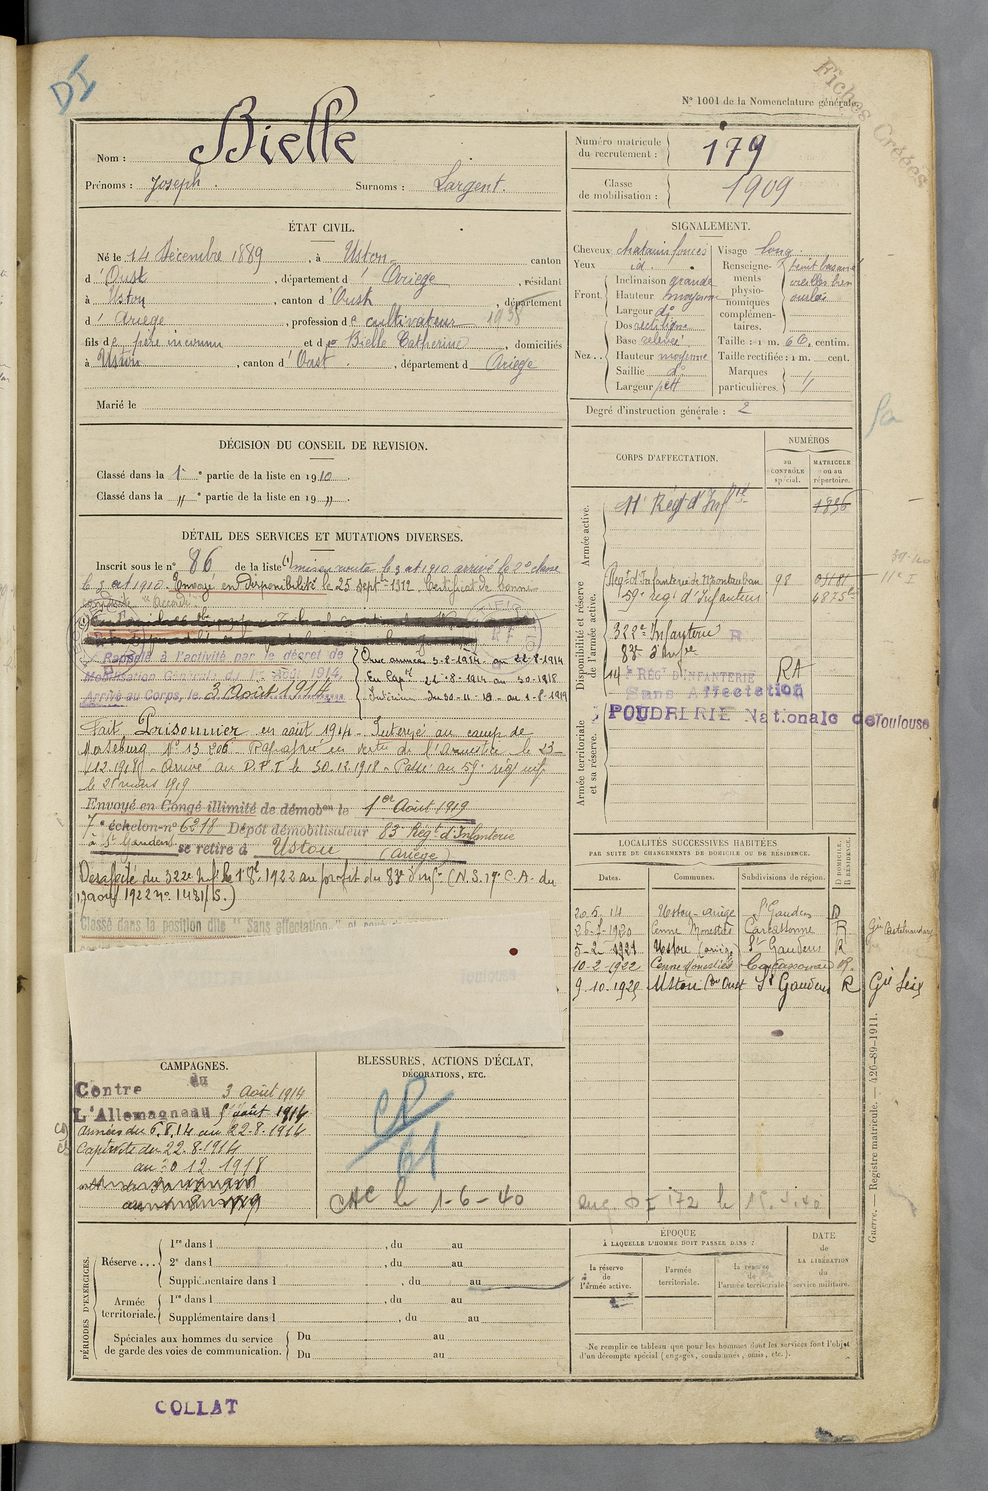 DI
Fiches Créées
N° 1001 de la Nomenclature générale.
Nom : Bielle
Prénoms : Joseph. Surnoms : Largent.
Numéro matricule du recrutement : 179
Classe de mobilisation : 1909
ÉTAT CIVIL.
Né le 14 Décembre 1889, à Ustou canton
d'Oust, département d'Ariège, résidant
à Ustou, canton d'Oust, département
d'Ariège, profession de cultivateur 1938
fils de père inconnu et de Bielle Catherine, domiciliés
à Ustou, canton d'Oust, département d Ariège
Marié le
SIGNALEMENT.
Cheveux chatains foncés
Yeux id.
Front. Inclinaison grande
Hauteur moyenne
Largeur d°
Nez... Dos rectiligne
Base relevée
Hauteur moyenne
Saillie d°
Largeur petit
Visage long
Renseignements physionomiques complémentaires.
Taille : 1 m. 66, centim.
Taille rectifiée : 1 m. cent.
Marques particulières. //
Degré d'instruction générale : 2
DÉCISION DU CONSEIL DE REVISION.
Classé dans la 1e partie de la liste en 1910
Classé dans la „ e partie de la liste en 19 „
DÉTAIL DES SERVICES ET MUTATIONS DIVERSES.
Inscrit sous le n° 86 de la liste (1) mis en route le 3 oct 1910 arrivé le 2e classe
le 3 oct 1910. Envoyé en disponibilité le 25 septbre 1912. Certificat de bonne
conduite "Accordé".
Rappelé à l'activité par le décret de
Mobilisation Générale du 1er Août 1914.
Arrivé au Corps, le 3 Août 1914
Aux armées 5-8-1914 au 22-8-1914
En Capté 22-8-1914 au 30-1918
Intérieur du 30-11-18 au 1-8-1919
Fait Prisonnier en août 1914 - Interné au camp de
Merseburg N° 13.206 - Rapatrié en vertu de l'Armistice le 23
12.1918 - Arrivé au D.P.I le 30.12.1918 - Passé au 59e régt inf
le 25 mars 1919
Envoyé en Congé illimité de démobon le 1er Août 1919
7e échelon n° 6218 Dépôt démobilisateur 83e Régt d'Infanterie
à St Gaudens se retire à Ustou (Ariège)
Désaffecté du 322e Inf le 1922 au profit du 83e d'Inf (N.S. 17e C.A. du
17 août 1922 n° 1481/S.)
Classé dans la position dite "Sans affectation"
CORPS D'AFFECTATION.
NUMÉROS
au CONTRÔLE spécial.
MATRICULE ou au répertoire.
Armée active.
Disponibilité et réserve de l'armée active.
Armée territoriale et sa réserve.
11e Régt d'Infie 1836
Régt d'Infanterie de Montauban 98
59e régt d'Infanterie
322e Infanterie R
83e d'Infie
14e RÉGT D'INFANTERIE RA
Sans Affectation
POUDRERIE Nationale de Toulouse
LOCALITÉS SUCCESSIVES HABITÉES
PAR SUITE DE CHANGEMENTS DE DOMICILE OU DE RÉSIDENCE.
Dates. Communes. Subdivisions de région. D DOMICILE. R RÉSIDENCE.
20.5.14 Ustou-Ariège St Gaudens D
26-1-1920 Cenne Monestiés Carcassonne R
5-2-1921 Ustou (Ariège) St Gaudens R
10-2-1922 Cenne Monestiés Carcassonne
9.10-1929 Ustou Con Oust St Gaudens R Gie Seix
CAMPAGNES.
Contre du 3 Août 1914
L'Allemagne au 5 août 1914
Armées du 6.8.14 au 22-8-1914
Captivité du 22-8-1914
au 30 12 1918
BLESSURES, ACTIONS D'ÉCLAT,
DÉCORATIONS, ETC.
CR
61
CAC le 1-6-40
PÉRIODES D'EXERCICES.
Réserve...
1re dans l , du au
2e dans l , du au
Supplémentaire dans l , du au
Armée territoriale.
1re dans l , du au
Supplémentaire dans l , du au
Spéciales aux hommes du service de garde des voies de communication.
Du au
Du au
ÉPOQUE
À LAQUELLE L'HOMME DOIT PASSER DANS :
la réserve de l'armée active.
l'armée territoriale.
la réserve de l'armée territoriale
DATE de LA LIBÉRATION du service militaire.
Ne remplir ce tableau que pour les hommes dont les services font l'objet
d'un décompte spécial (engagés, condamnés, omis, etc.).
Guerre. — Registre matricule. — 426-89-1911.
COLLAT